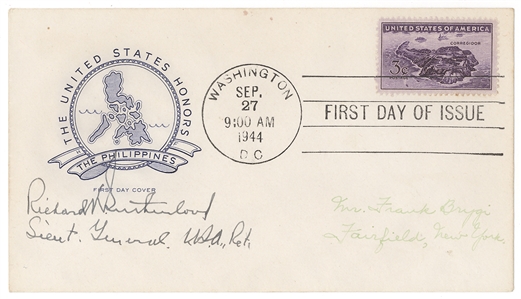 THE UNITED STATES HONORS
THE PHILIPPINES
FIRST DAY COVER
WASHINGTON
SEP.
27
9:00 AM
1944
D C
UNITED STATES OF AMERICA
CORREGIDOR
3¢
FIRST DAY OF ISSUE
Richard K. Sutherland
Lieut. General. USA, Ret.
Mr. Frank
Fairfield, New York.